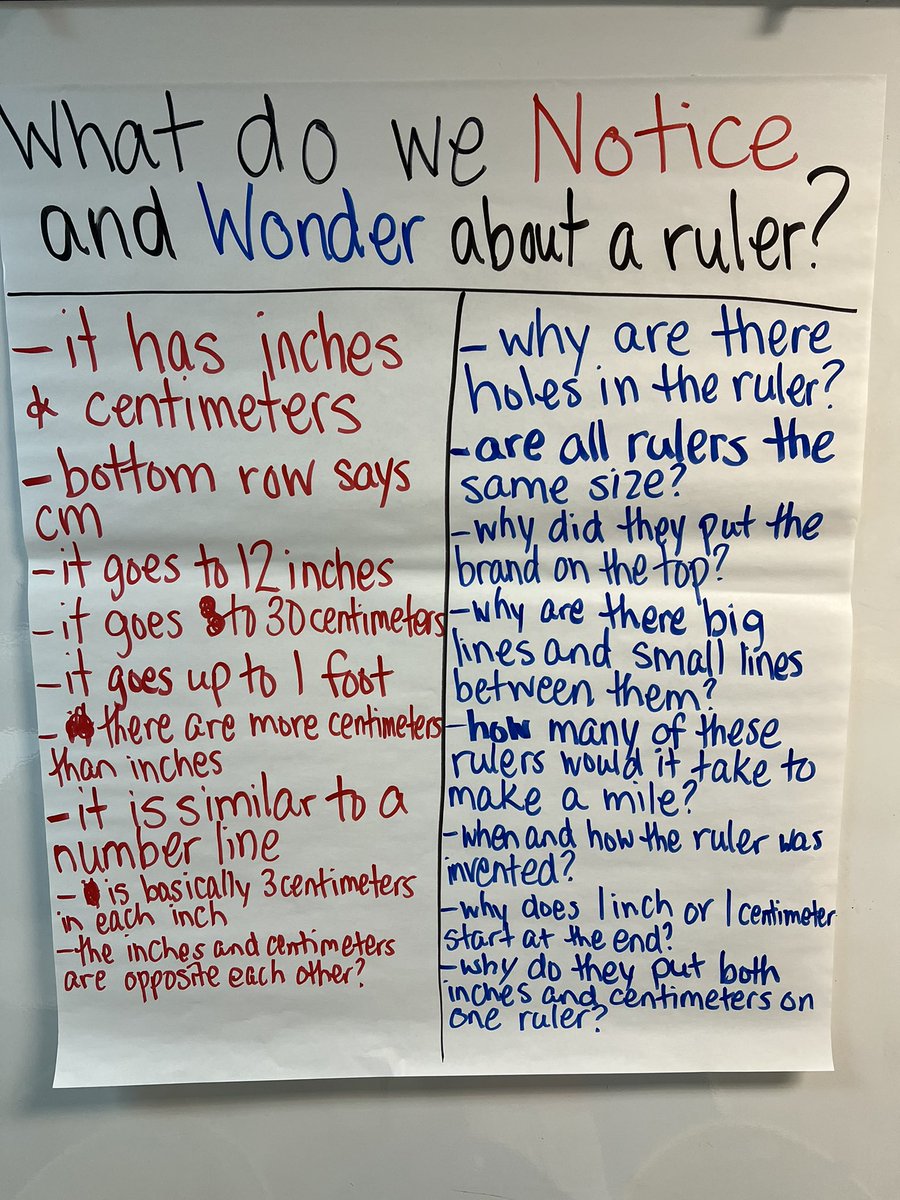 What do we Notice
and Wonder about a ruler?
- it has inches
& centimeters
- bottom row says
cm
- it goes to 12 inches
- it goes to 30 centimeters
- it goes up to 1 foot
- there are more centimeters
than inches
- it is similar to a
number line
- is basically 3 centimeters
in each inch
- the inches and centimeters
are opposite each other?
- why are there
holes in the ruler?
- are all rulers the
same size?
- why did they put the
brand on the top?
- why are there big
lines and small lines
between them?
- how many of these
rulers would it take to
make a mile?
- when and how the ruler was
invented?
- why does 1 inch or 1 centimeter
start at the end?
- why do they put both
inches and centimeters on
one ruler?